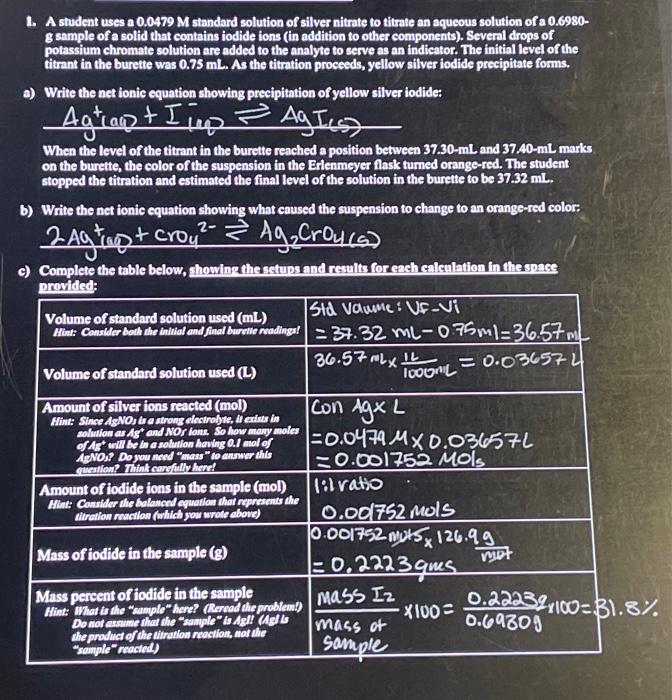 1. A student uses a 0.0479 M standard solution of silver nitrate to titrate an aqueous solution of a 0.6980-
g sample of a solid that contains iodide ions (in addition to other components). Several drops of
potassium chromate solution are added to the analyte to serve as an indicator. The initial level of the
titrant in the burette was 0.75 mL. As the titration proceeds, yellow silver iodide precipitate forms.
a) Write the net ionic equation showing precipitation of yellow silver iodide:
Ag⁺(aq) + I⁻(aq) ⇌ AgI(s)
When the level of the titrant in the burette reached a position between 37.30-mL and 37.40-mL marks
on the burette, the color of the suspension in the Erlenmeyer flask turned orange-red. The student
stopped the titration and estimated the final level of the solution in the burette to be 37.32 mL.
b) Write the net ionic equation showing what caused the suspension to change to an orange-red color:
2Ag⁺(aq) + CrO₄²⁻ ⇌ Ag₂CrO₄(s)
c) Complete the table below, showing the setups and results for each calculation in the space
provided:
Volume of standard solution used (mL)
Hint: Consider both the initial and final burette readings!
Std Volume: VF-Vi
= 37.32 mL - 0.75ml = 36.57 mL
Volume of standard solution used (L)
36.57 mL x 1L/1000mL = 0.03657 L
Amount of silver ions reacted (mol)
Hint: Since AgNO₃ is a strong electrolyte, it exists in
solution as Ag⁺ and NO₃⁻ ions. So how many moles
of Ag⁺ will be in a solution having 0.1 mol of
AgNO₃? Do you need "mass" to answer this
question? Think carefully here!
Con Ag x L
= 0.0479 M x 0.03657L
= 0.001752 Mols
Amount of iodide ions in the sample (mol)
Hint: Consider the balanced equation that represents the
titration reaction (which you wrote above)
1:1 ratio
0.001752 mols
Mass of iodide in the sample (g)
0.001752 mols x 126.9g/mol
= 0.2223 gms
Mass percent of iodide in the sample
Hint: What is the "sample" here? (Reread the problem!)
Do not assume that the "sample" is AgI! (AgI is
the product of the titration reaction, not the
"sample" reacted.)
mass I₂/mass of sample x100 = 0.2223g/0.6980g x100 = 31.8%